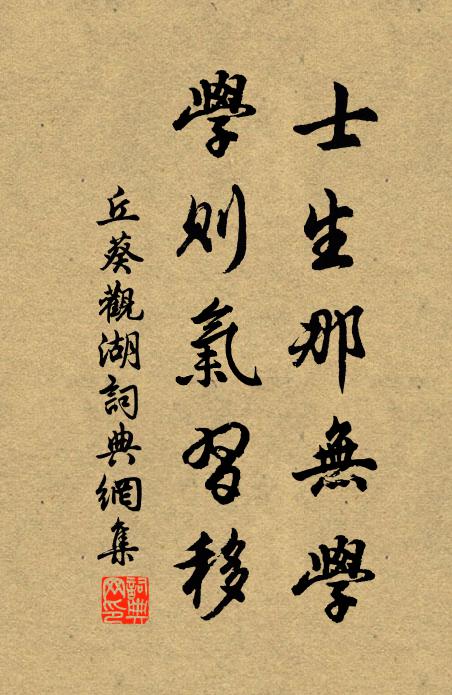 士生那無學
學則氣習移
丘葵觀湖詞典網集
詞典
网印